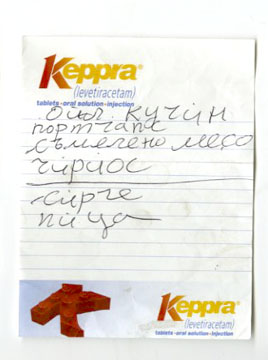 Keppra
(levetiracetam)
tablets • oral solution • injection
кучин
съмелено месо
чириос
пица
Keppra
(levetiracetam)
tablets • oral solution • injection